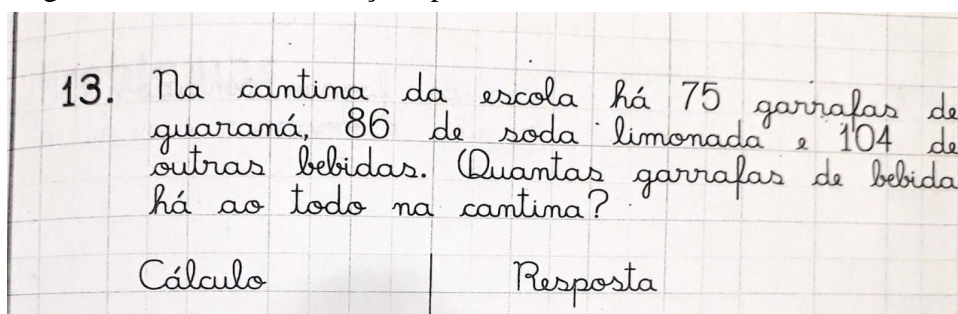 13. Na cantina da escola há 75 garrafas de
guaraná, 86 de soda limonada e 104 de
outras bebidas. Quantas garrafas de bebida
há ao todo na cantina?
Cálculo
Resposta